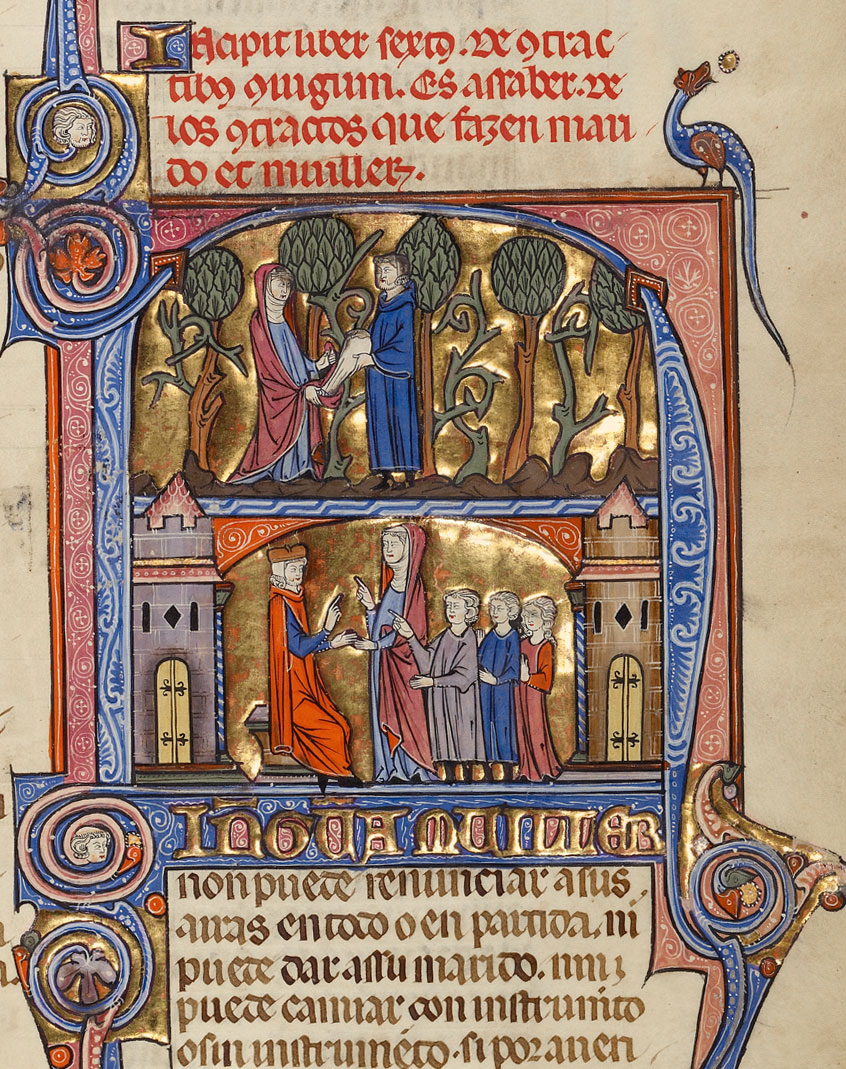 Incipit liber sexto. De ꝯtrac-
tibꝯ ꝯiugum. Es assaber. de
los ꝯtractos que fazen mari
do et muiller.
NĪNGŪA MUILLER
non puede renunciar a sus
auras en todo o en partida. ni
puede dar assu marido. nin
puede camiar con instrumēto
o sin instrumēto. si por auen